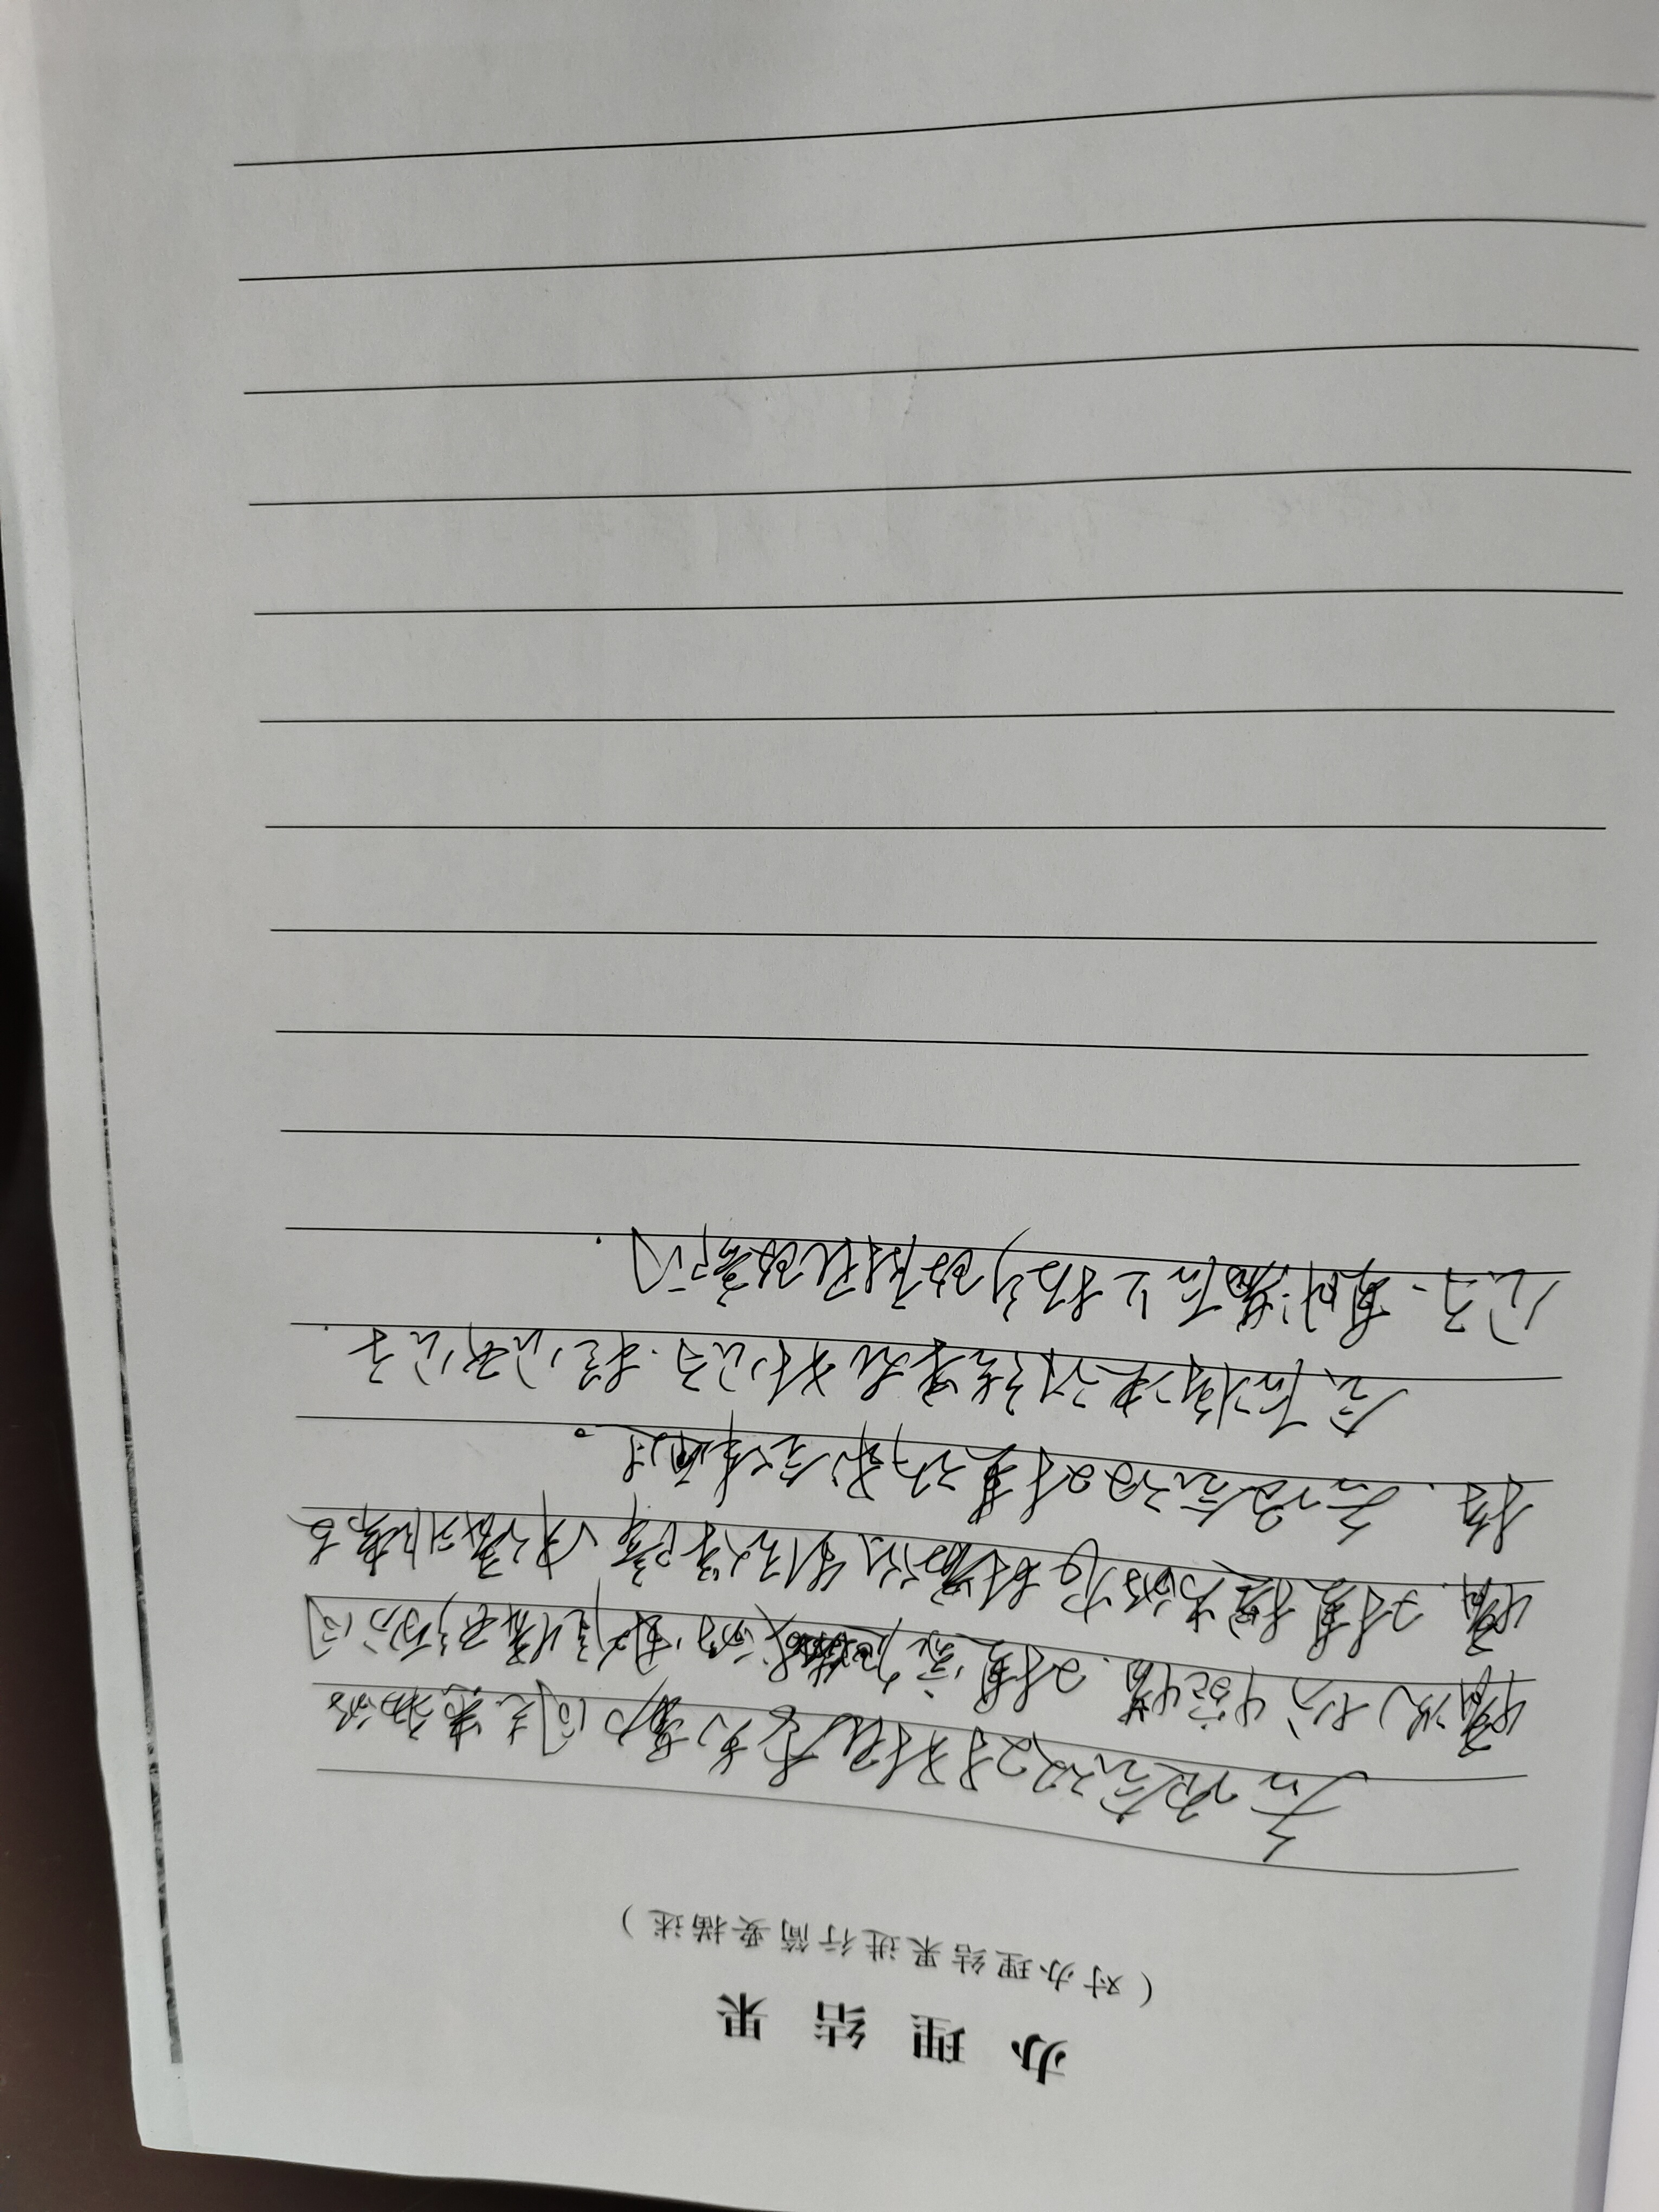 办理结果
（对办理结果进行简要描述）
各项会议对村民李为勤同志患病的
情况十分惋惜、对其家庭造成的困难情形十分同
情、对其提出的农村最低生活保障申请非常支
持、各项会议对其诉求全体通过。
会后将决议结果在村公示栏公开公示.
公示期满后上报乡政府民政部门.